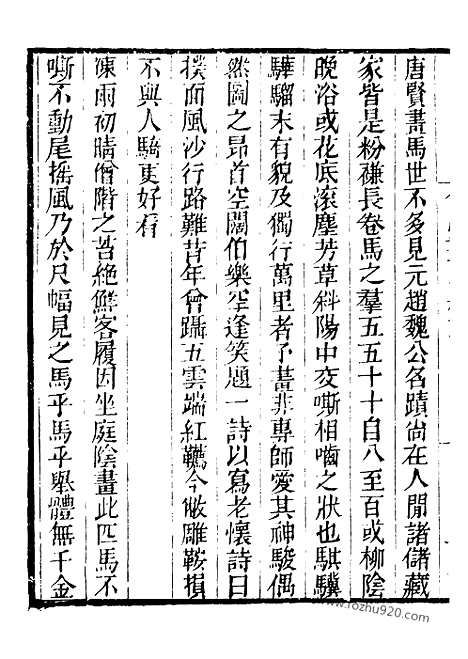 唐賢畫馬世不多見元趙魏公名蹟尙在人閒諸儲藏
家皆是粉縑長卷馬之羣五五十十自八至百或柳陰
晚浴或花底滾塵芳草斜陽中交嘶相齧之狀也騏驥
驊騮未有貌及獨行萬里者予畫非專師愛其神駿偶
然圖之昂首空闊伯樂罕逢笑題一詩以寫老懷詩曰
撲面風沙行路難昔年曾躡五雲端紅韉今敝雕鞍損
不與人騎更好看
凍雨初晴僧階之苔絶鮮客履因坐庭陰畫此匹馬不
嘶不動尾搖風乃於尺幅見之馬乎馬乎舉體無千金
www.rozhu920.com